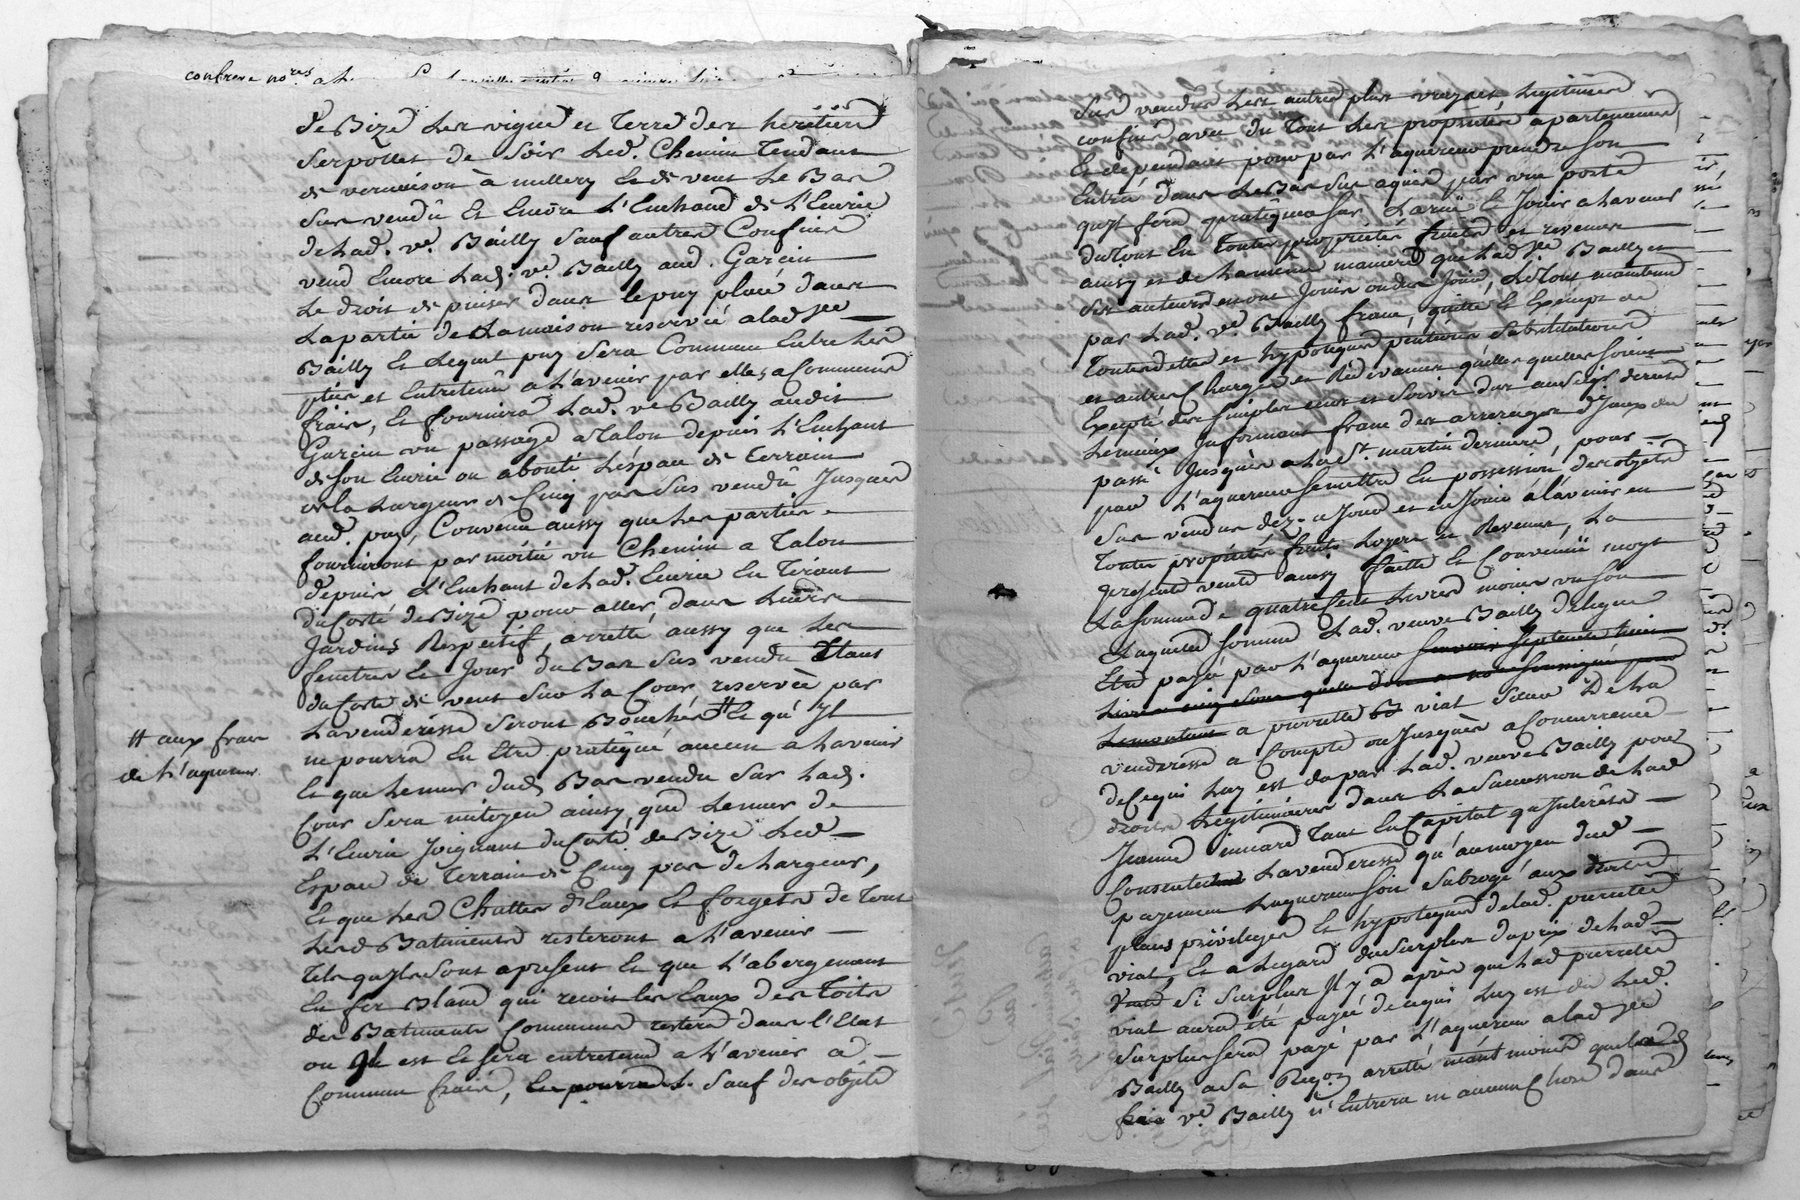 confrere no.res a
de Bize les vigne et terre des heritiers
Serpollet de Soir led. Chemin tendant
de vernaison à millery et de vent le Bas
Sus vendû et encore l'Enchand de l'Ecurie
de lad. ve. Bailly Sauf autres Confins
vend encore lad. ve. Bailly aud. Garcin
le droit de puiser dans lepuy placé dans
la partie de la maison reservée a lad ve
Bailly et lequel puy Sera Commun entre les
pties et entretenû a l'avenir par elles a Communs
fraix, et fournira lad. ve Bailly audit
Garcin un passage a talon depuis l'Enchant
de Son Ecurie ou abouté l'espace de terrain
de la largeur de Cinq pas Sus vendû Jusques
aud. puy, Convenu aussy que les parties
fourniront par moitié un Chemin a talon
depuis l'Enchant de lad. Ecurie en tirant
du Costé de Bize pour aller dans leurs
Jardins Respectif, arretté aussy que les
fenetres et Jour du Bas Sus vendu Etant
du Costé de vent Sur la Cour reservée par
la venderesse Seront Bouchés # et qu'Yl
ne pourra en Etre pratiqué aucun a l'avenir
# aux frais
de l'aquereur
et que le mur dud. Bas vendu Sur lad.
Cour Sera mitoyen ainsy que le mur de
l'Ecurie Joignant du Costé de Bize led
Espace de terrain de Cinq pas de largeur,
et que les Chuttes d'Eaux et forgets de tout
lesd Batiments resteront a l'avenir
tels qu'yls Sont apresent et que l'abergement
en fer Blanc qui recoit les Eaux des toits
des Batiments Communs restera dans l'Etat
ou Yl est et Sera entretenu a l'avenir a
Commun fraix, Sauf des objets
Sus vendus les autres plus vrayes et legitimes
confins avec du tout les proprietés apartenances
et dependants pour par l'aquereur prendre Son
Entré dans le Bas Sus aquis par une porte
qu'Yl fera pratiquer Sur la ruë et Jouir a l'avenir
du tout en toutes proprietés fruits et revenus
ainsy et de la même maniere que lad ve Bailly et
Ses auteurs en ont Joui ou du Jouir, le tout maintenu
par lad. ve. Bailly franc, quitte et Exempt de
toutes dettes et hypoteques pentions Substitutions
et autres Charges et Rédevances quelles quelles Soient
Excepté des Simples cens et Servis dus aux Seigrs directs
le mieux Informant franc des arrerages d'Yceux du
passé Jusques a la St. martin derniere, pour
par l'aquereur Se mettre en possession des objets
Sus vendus dez ce Jour et en Jouir à l'avenir en
toutes propriétés fruits loyers et Revenus, la
presente vente aussy faitte et Convenuë moyt
la Somme de quatre Cent livres moins un Sou
laquelle Somme lad. veuve Bailly delegue
Etre payé par l'aquereur
a pierrette viat Sœur de la
venderesse a Compte ou Jusques a Concurrence
de Cequi luy est du par lad. veuve Bailly pour
droits legitimaires dans la Succession de lad
Jeanne minard tant en Capital qu'Interêts
Consentant la venderesse qu'au moyen dud
payement l'aquereur Soit Subrogé aux droits
plans priviléges et hypoteques de lad. pierrette
viat, Et a legard du Surplus du prix de lad
vente Si Surplus Yl y a après que lad pierrette
viat aura été payée de cequi luy est du led.
Surplus Sera payé par l'aquereur a lad ve
Bailly a Sa Requon arretté neantmoins que lad
ve. Bailly n'Entrera en aucune Chose dans